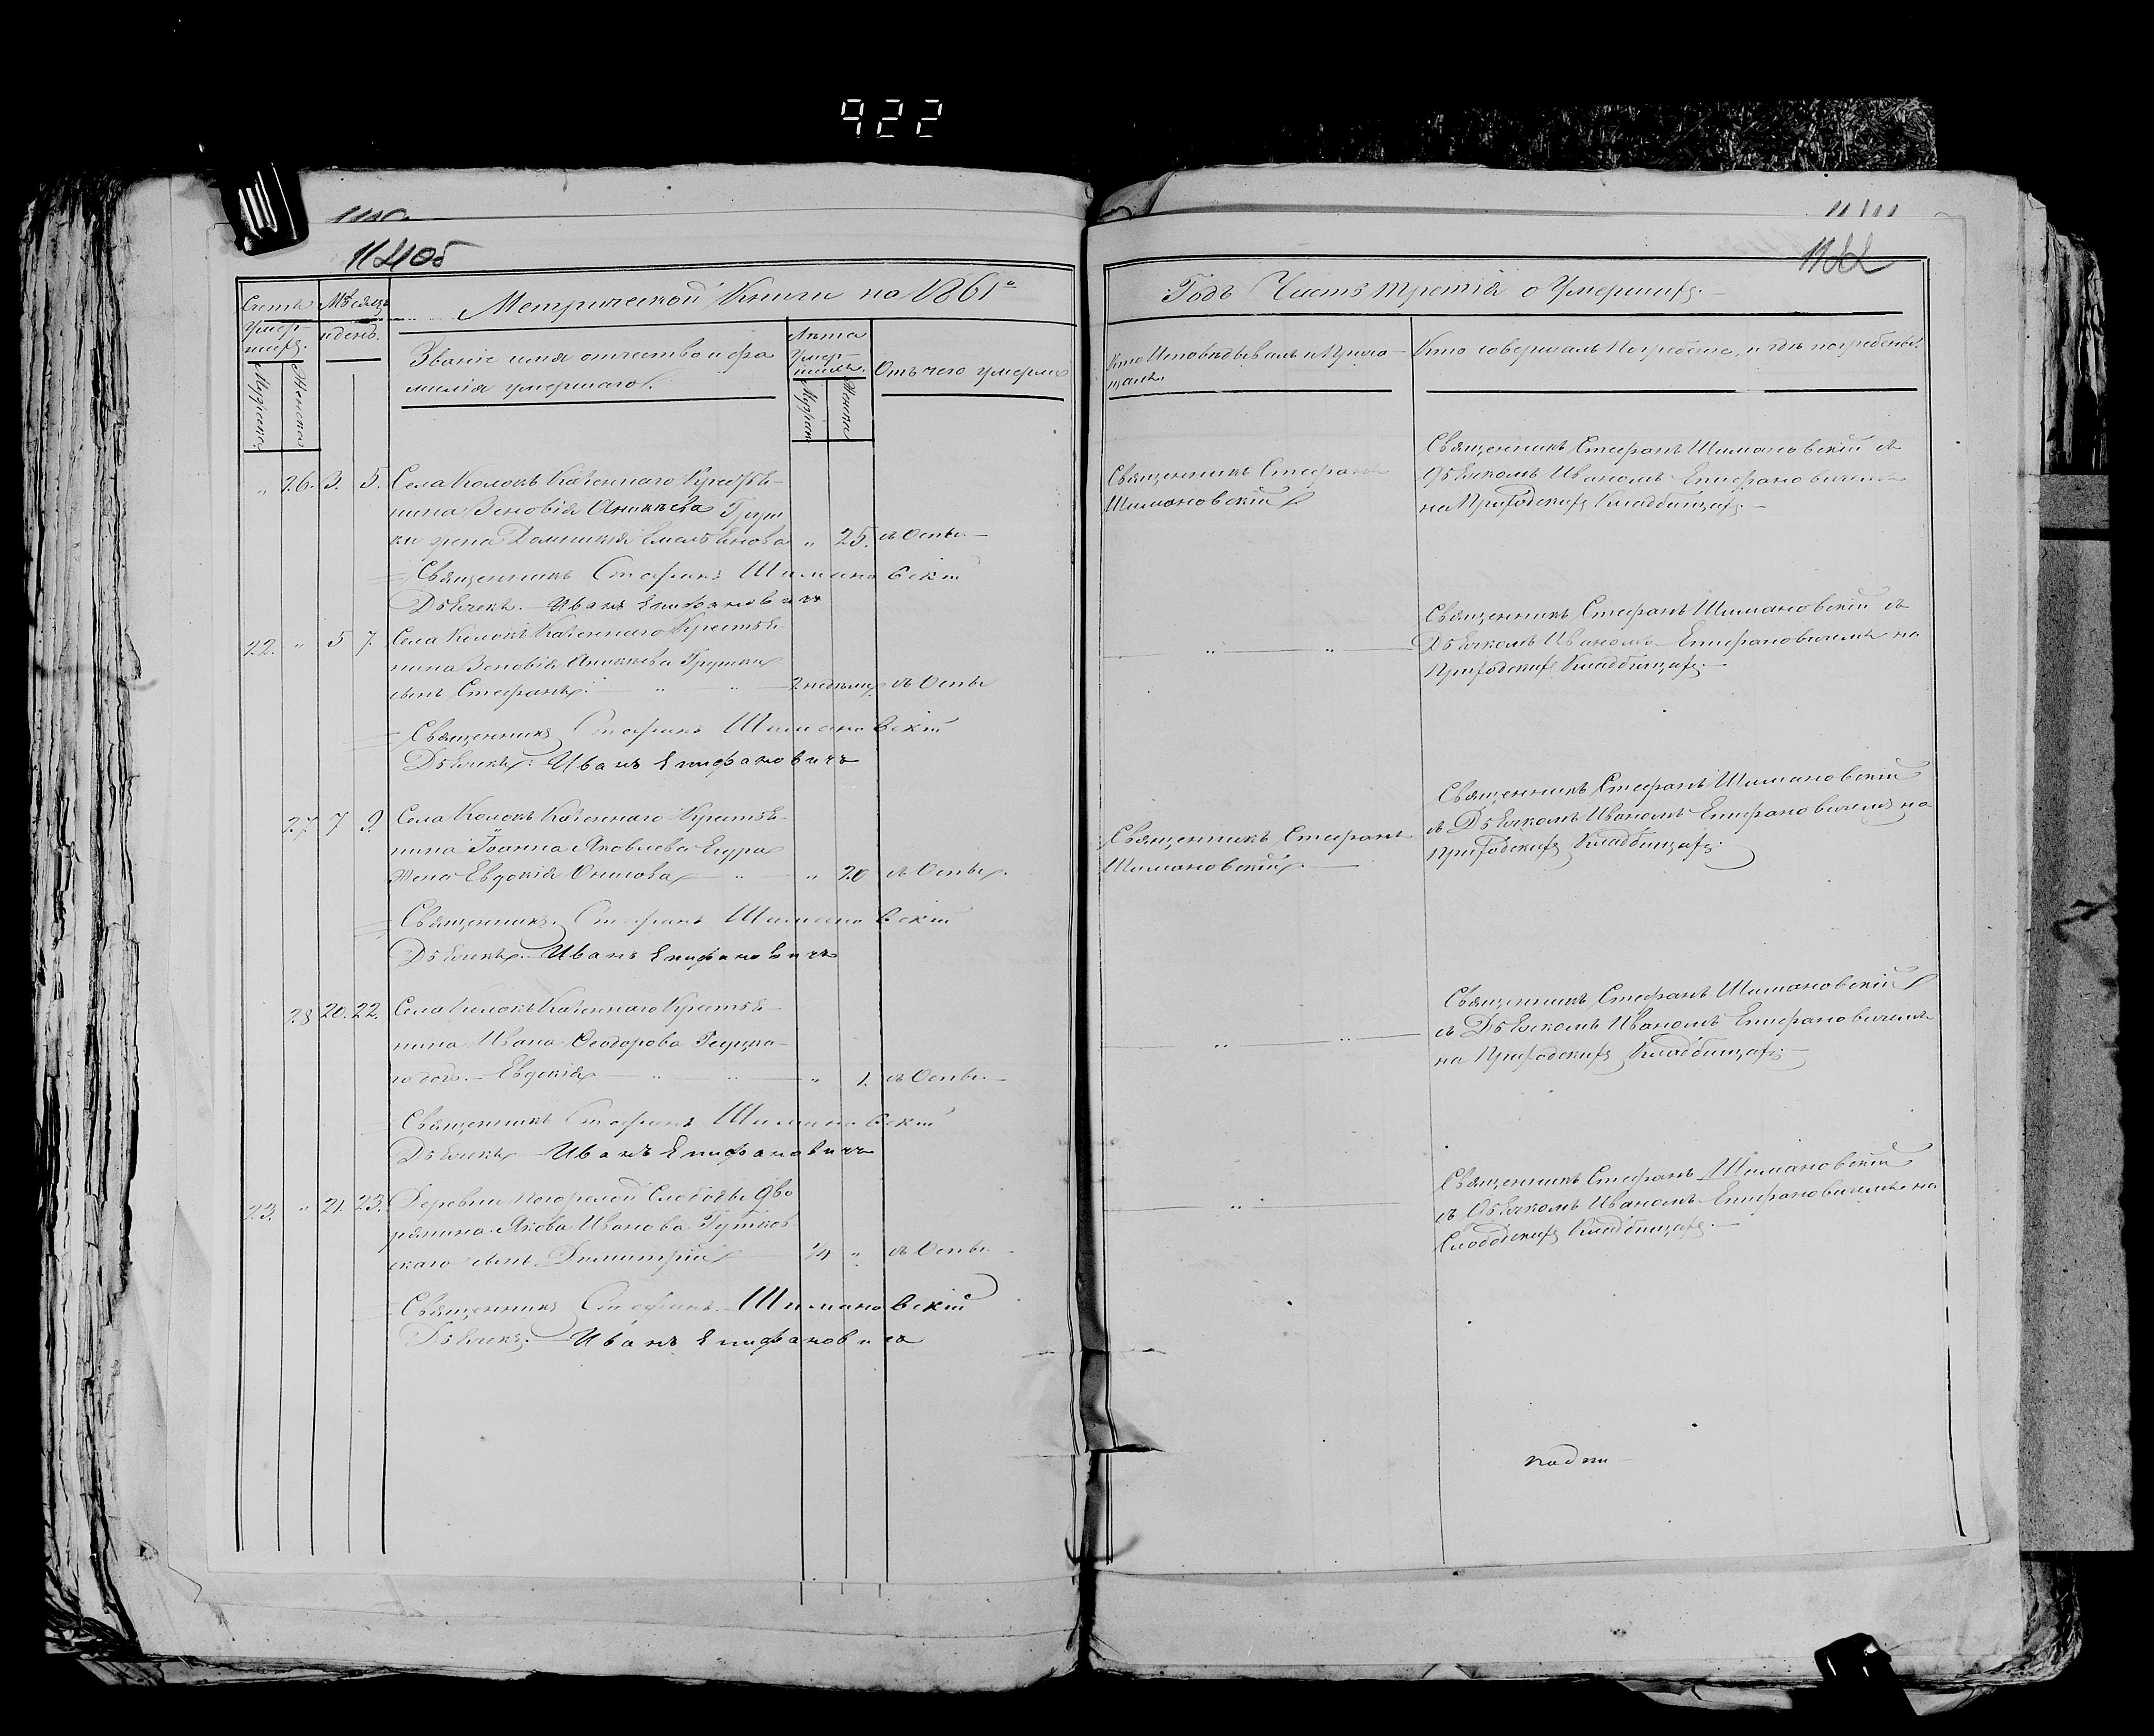 922
Метрической Книги на 1861й
Годъ Часть третія о Умершихъ.
Счетъ умершихъ.
Мѣсяцъ и день.
Званіе имя отчество и фа
милія умершаго.
Лѣта умершихъ.
Отъ чего умерли
Мужеска
Женска
Кто совершалъ Погребеніе, и гдѣ погребены.
" 26. 3. 5. Села Колокъ Казеннаго Крестья-
нина Зеновія Аникіева
жена Домникія Емельянова " 25. съ Оспы
Священникъ Стефанъ
Шимановскій
Священникъ Стефанъ Шимановскій съ
Дьячкомъ Иваномъ Епифановичемъ
на Приходскихъ Кладбищахъ.
Священникъ Стефанъ Шимановскій
Дьячекъ Иванъ Епифановичъ
22. " 5 7. Села Колокъ Казеннаго Крестья-
нина Зеновія Аникіева Грушки
сынъ Стефанъ. " " 2 недѣли съ Оспы
" "
Священникъ Стефанъ Шимановскій съ
Дьячкомъ Иваномъ Епифановичемъ на
Приходскихъ Кладбищахъ.
Священникъ Стефанъ Шимановскій
Дьячекъ Иванъ Епифановичъ
27. 7 9. Села Колокъ Казеннаго Крестья-
нина Іоанна Яковлева
Жена Евдокія " " 20 съ Оспы.
Священникъ Стефанъ
Шимановскій
Священникъ Стефанъ Шимановскій
съ Дьячкомъ Иваномъ Епифановичемъ на
Приходскихъ Кладбищахъ.
Священникъ Стефанъ Шимановскій
Дьячекъ Иванъ Епифановичъ
28 20. 22. Села Колокъ Казеннаго Крестья-
нина Ивана Феодорова
Евдокія " " " 1. съ Оспы.
" "
Священникъ Стефанъ Шимановскій
съ Дьячкомъ Иваномъ Епифановичемъ
на Приходскихъ Кладбищахъ
Священникъ Стефанъ Шимановскій
Дьячекъ Иванъ Епифановичъ
23. " 21. 23. Деревни Погорелой Слободы Дво
рянина Якова Иванова Гутков
скаго сынъ Димитрій 1/4 " съ Оспы.
"
Священникъ Стефанъ Шимановскій
съ Дьячкомъ Иваномъ Епифановичемъ на
Слободскихъ Кладбищахъ.
Священникъ Стефанъ Шимановскій
Дьячекъ Иванъ Епифановичъ